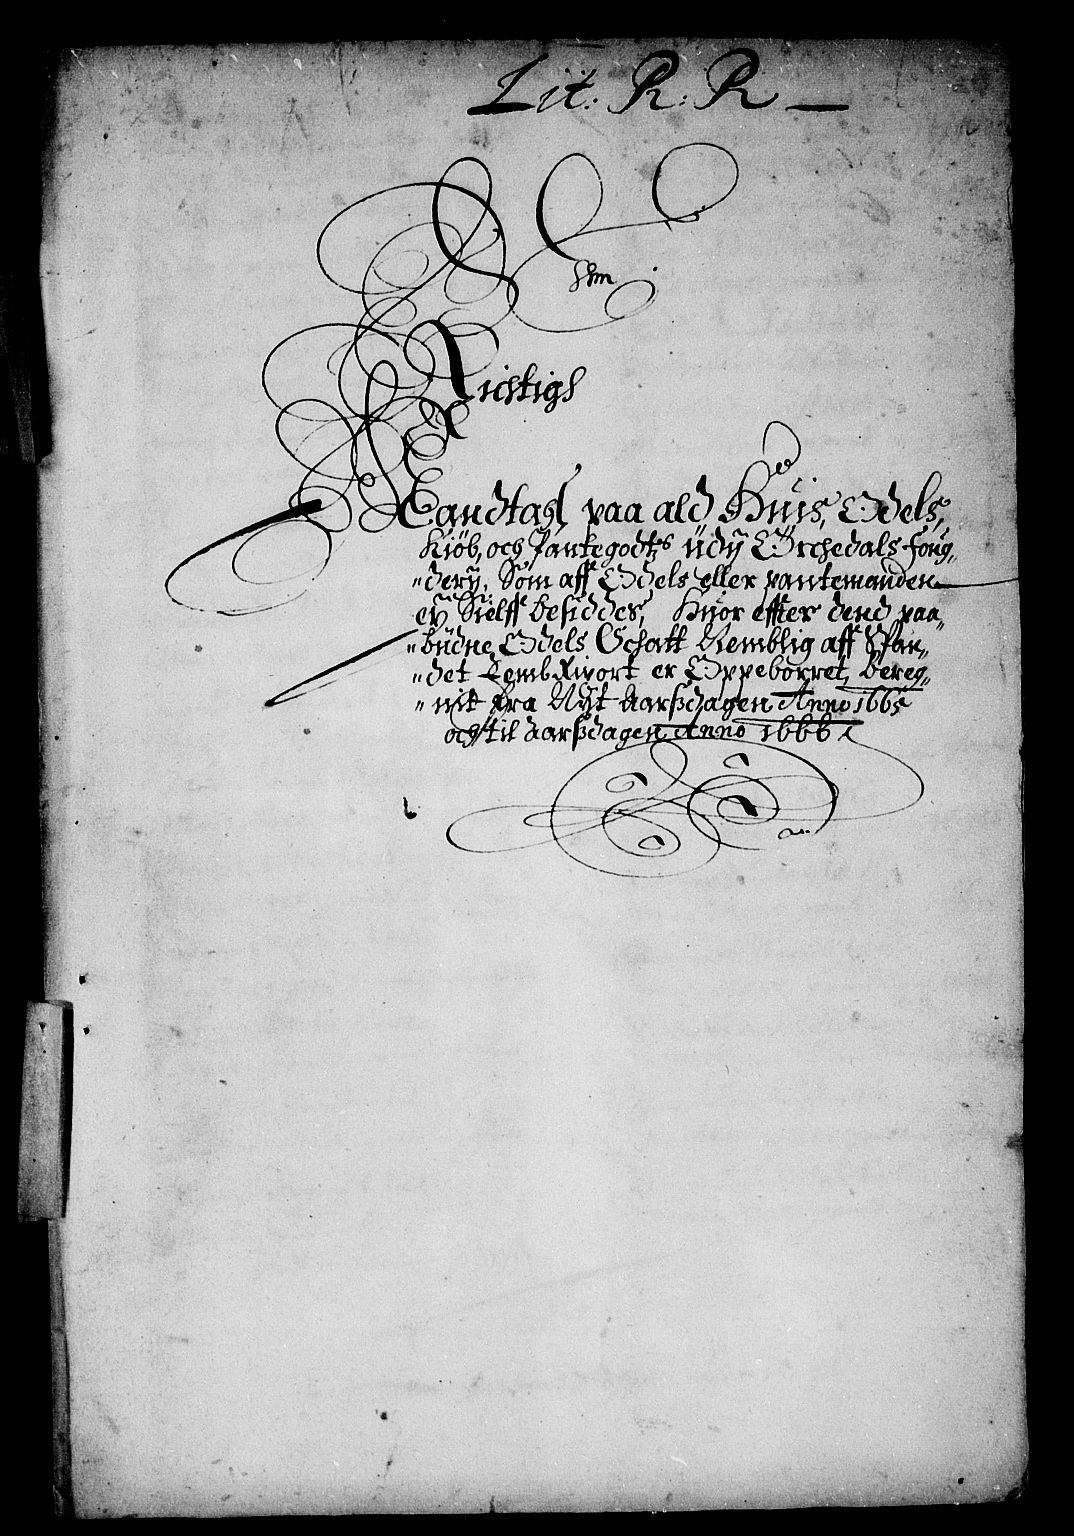 Lit: R: R
Een
Richtigh
Mandtahl paa ald Huis, Odels,
Kiöb, och Pantegodtz udj Orchedals foug„
„derj, Som aff Odels eller pantemanden
ej Sielff besiddes, Huor effter dend paa„
„budne Odels Schatt Nemblig aff Span„
„det  er Oppeborret, bereg„
„nit fra Nÿt Aarsdagen Anno 1665
och til Aarsdagen Anno 1666